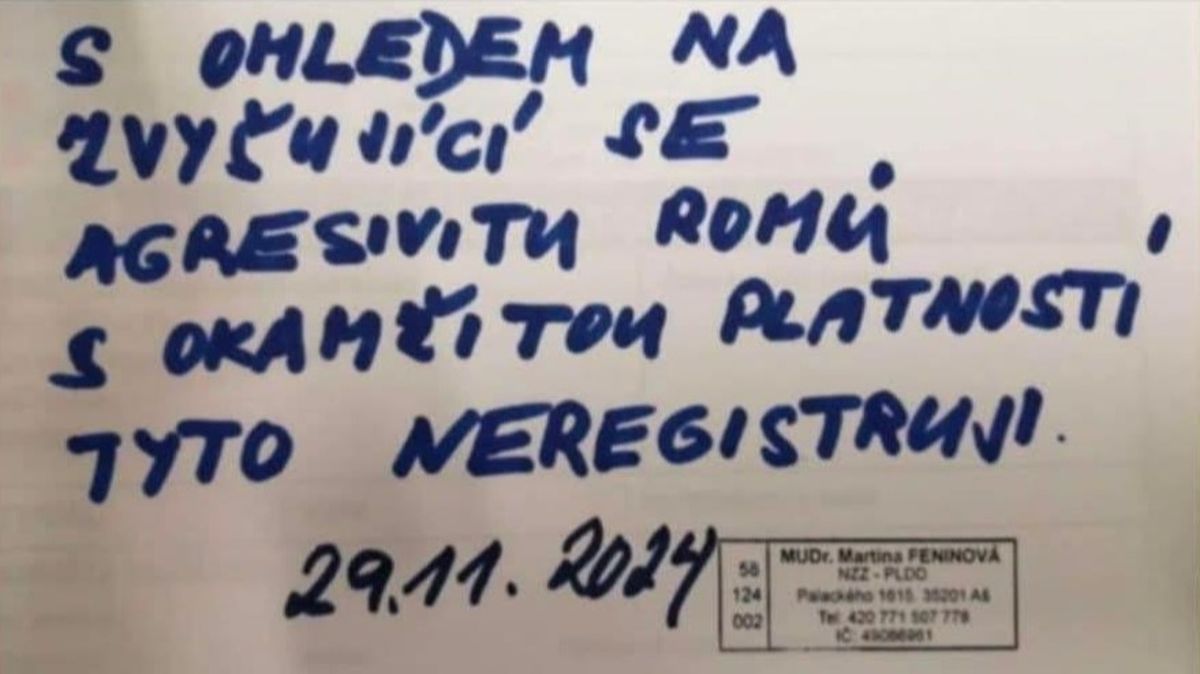 S OHLEDEM NA
ZVYŠUJÍCÍ SE
AGRESIVITU ROMŮ
S OKAMŽITOU PLATNOSTÍ
TYTO NEREGISTRUJI.
29.11. 2024
58
124
002
MUDr. Martina FENINOVÁ
NZZ - PLDD
Palackého 1615, 35201 Aš
Tel: 420 771 507 778
IČ: 49086961